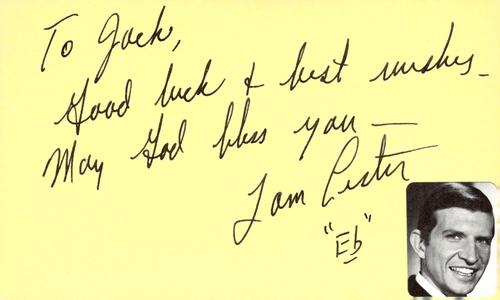 To Jack,
Good luck & best wishes -
May God bless you —
Tom Lester
"Eb"